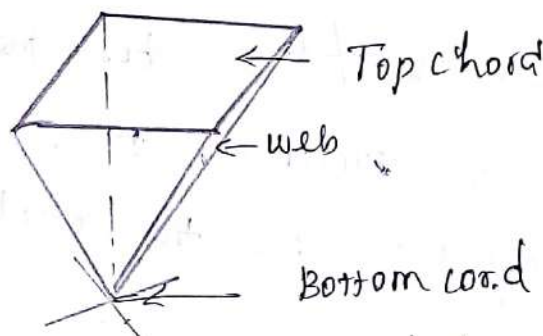 Top chord
web
Bottom cord